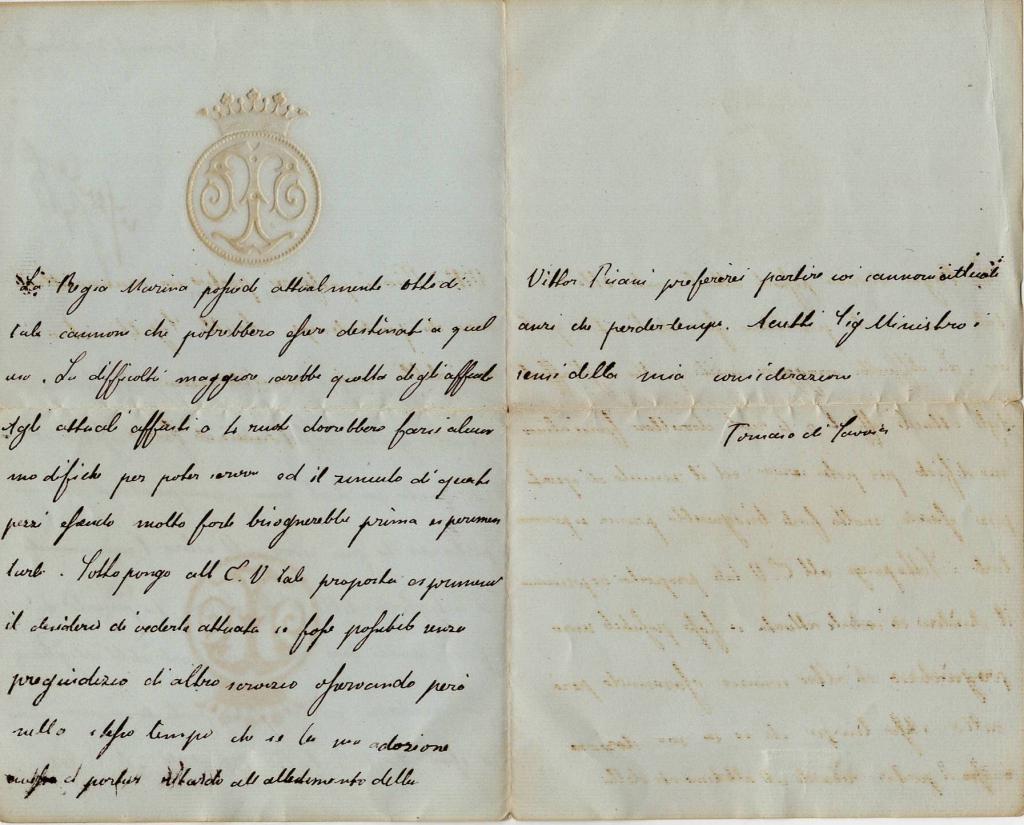 La Regia Marina possiede attualmente otto di
tali cannoni che potrebbero essere destinati a quel
uso. La difficoltà maggiore sarebbe quella degli affusti
Agli attuali affusti a 4 ruote dovrebbero farsi alcune
modifiche per poter servire ed il rinculo di questi
pezzi essendo molto forte bisognerebbe prima esperimen
tarli. Sottopongo all E. V tale proposta esprimendo
il desiderio di vederla attuata se fosse possibile senza
pregiudizio di altro servizio osservando però
nello stesso tempo che se la sua adozione
portar ritardo all allestimento della
Vittor Pisani preferirei partire coi cannoni attuali
anzi che perder tempo. Accetti Sig Ministro i
sensi della mia considerazione
Tomaso di Savoia